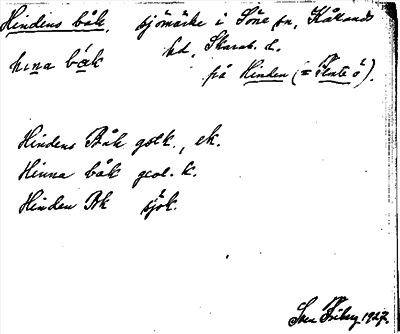 Hindens båk, sjömärke i Söne sn, Kålands
hd, Skarab. l.
hina båk
på Hinden (= Hinds ö).
Hindens Båk gstk., ek.
Hinna båk geol. k.
Hinden Bk sjök.
Sven 1927.